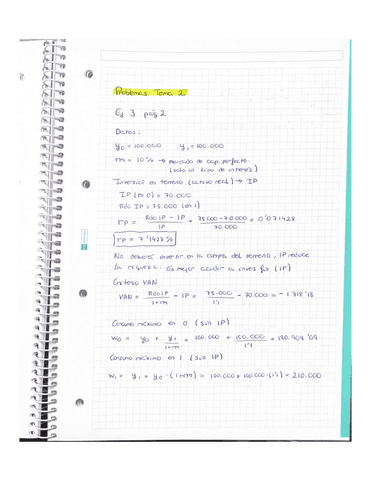 Problemas Tema 2.
Ej 3 pág 2
Datos:
y₀ = 100.000 y₁ = 100.000
m = 10% → mercado de cap. perfecto
(solo un tipo de interés)
Inversión en terreno (activo real) → IP
IP (en 0) = 70.000
Rdo IP = 75.000 (en 1)
rp = Rdo IP - IP / IP = 75.000 - 70.000 / 70.000 = 0'071428
rp = 7'1428%
No debería invertir en la compra del terreno, IP reduce
la riqueza. Es mejor acudir a inves. fra (IF)
Criterio VAN
VAN = Rdo IP / 1+m - IP = 75.000 / 1'1 - 70.000 = -1.818'18
Consumo máximo en 0 (sin IP)
W₀ = y₀ + y₁ / 1+m = 100.000 + 100.000 / 1'1 = 190.909'09
Consumo máximo en 1 (sin IP)
W₁ = y₁ + y₀ · (1+m) = 100.000 + 100.000 · (1'1) = 210.000